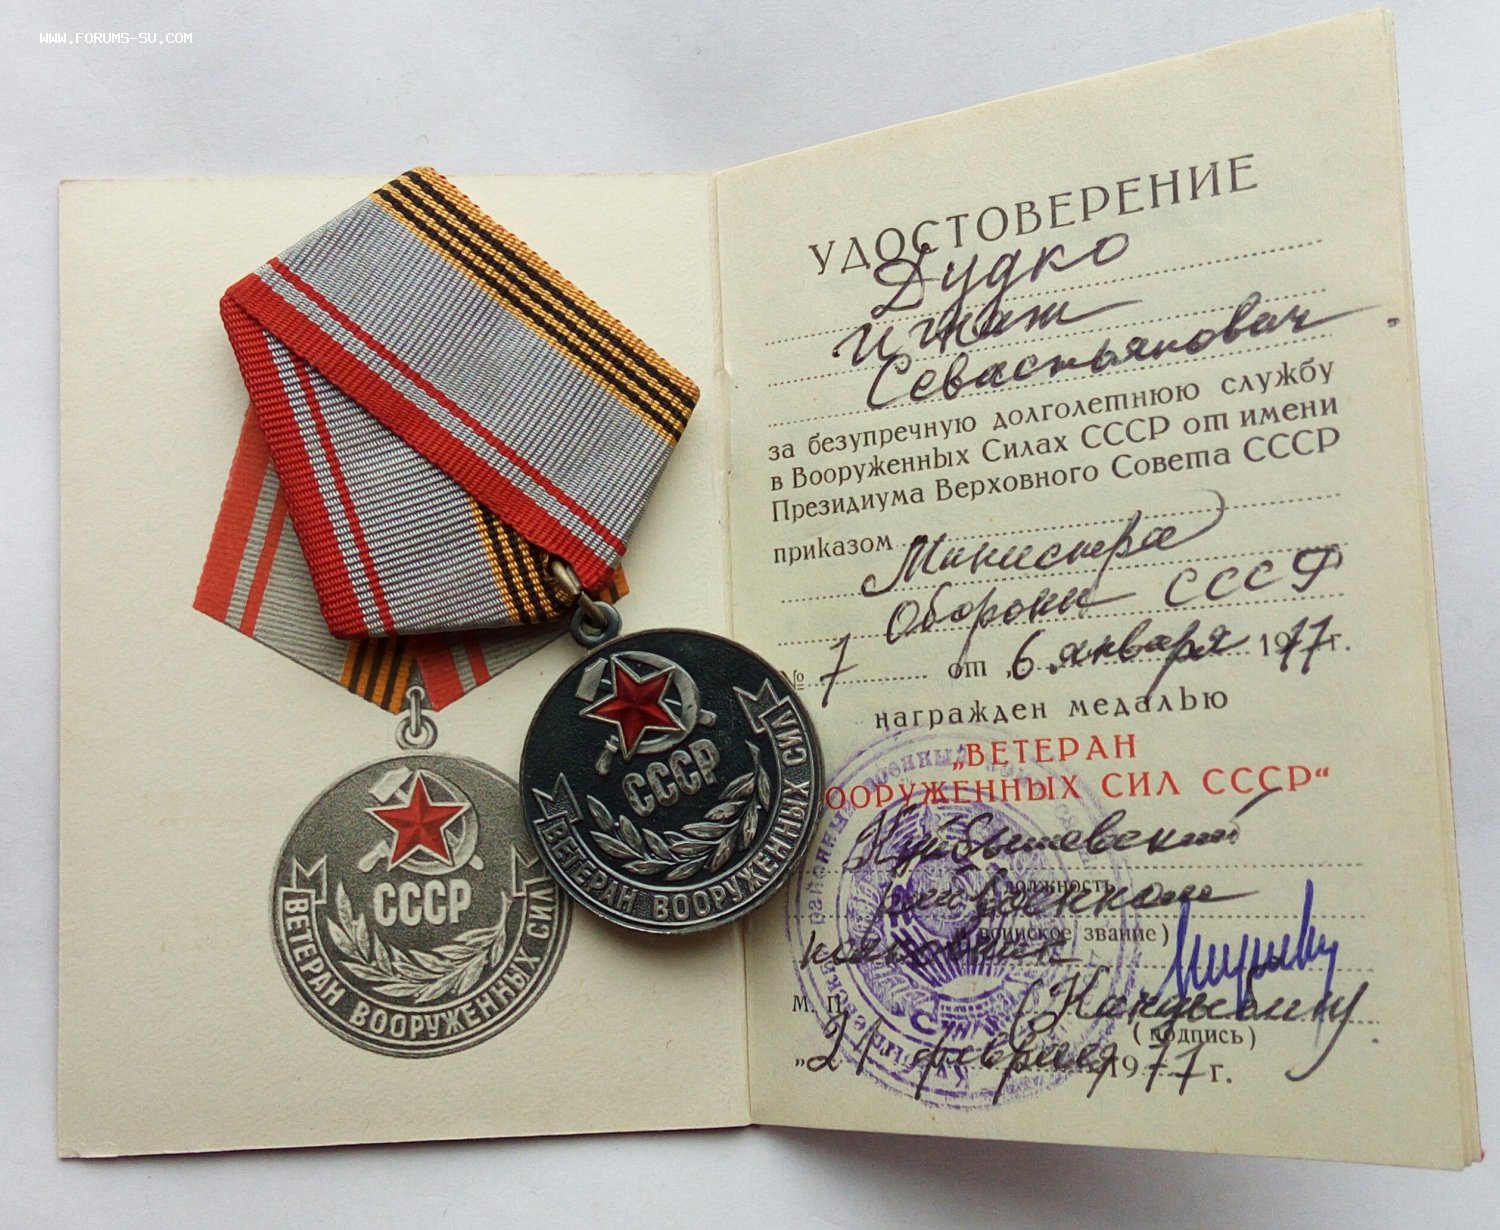 WWW.FORUMS-SU.COM
СССР
ВЕТЕРАН ВООРУЖЕННЫХ СИЛ
СССР
ВЕТЕРАН ВООРУЖЕННЫХ СИЛ
УДОСТОВЕРЕНИЕ
Дудко
Игнат
Севастьянович
за безупречную долголетнюю службу
в Вооруженных Силах СССР от имени
Президиума Верховного Совета СССР
приказом Министра
Обороны СССР
№ 7 от „6 января 1977 г.
награжден медалью
„ВЕТЕРАН
ООРУЖЕННЫХ СИЛ СССР“
Куйбышевский
должность
райвоенком
и воинское звание)
М. П.
(подпись)
„21 февраля 1977 г.